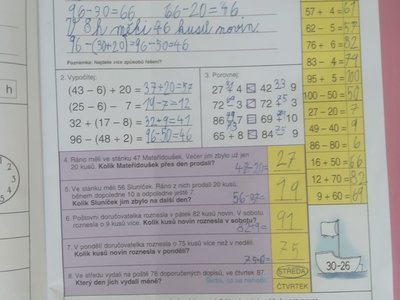 96-30=66 66-20=46
V 8h měli 46 kusů novin
96-(30+20)=96-50=46
Poznámka: Najdete více způsobů řešení?
2. Vypočítej:
(43 - 6) + 20 = 37+20=57
(25 - 6) - 7 = 19-7=12
32 + (17 - 8) = 32+9=41
96 - (48 + 2) = 96-50=46
3. Porovnej:
4. Ráno měli ve stánku 47 Mateřídoušek. Večer jim zbylo už jen
20 kusů. Kolik Mateřídoušek přes den prodali? 47-20= 27
5. Ve stánku měli 56 Sluníček. Ráno z nich prodali 20 kusů,
během dopoledne 10 a odpoledne ještě 7.
Kolik Sluníček jim zbylo na další den? 56-37= 19
6. Poštovní doručovatelka roznesla v pátek 82 kusů novin. V sobotu
roznesla o 9 kusů více. Kolik kusů novin roznesla v sobotu? 82+9= 91
7. V pondělí doručovatelka roznesla o 75 kusů více než v neděli.
Kolik kusů novin roznesla v pondělí? 75
8. Ve středu vydali na poště 78 doporučených dopisů, ve čtvrtek 87
Který den jich vydali méně?
STŘEDA
ČTVRTEK
57 + 4 = 61
62 - 5 = 57
76 + 6 = 82
83 - 4 = 79
95 + 5 = 100
100 - 50 = 50
27 - 7 = 20
49 - 40 = 9
86 - 80 = 6
16 + 50 = 66
12 + 70 = 82
9 + 60 = 69
30-26
h